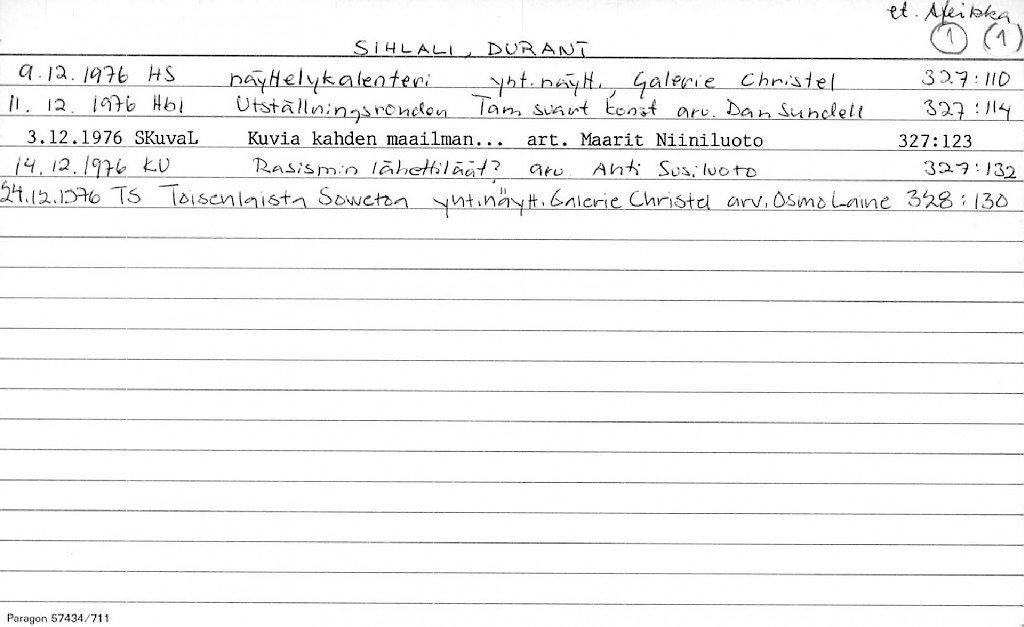 et. Afrikka
1 (1)
SIHLALI, DURANT
9.12.1976 HS näyttelykalenteri yht.näytt., Galerie Christel 327:110
11.12.1976 Hbl Utställningsronden Tam svart konst arv. Dan Sundell 327:114
3.12.1976 SKuvaL Kuvia kahden maailman... art. Maarit Niiniluoto 327:123
14.12.1976 KU Rasismin lähettiläät? arv. Antti Susiluoto 327:132
24.12.1976 TS Toisenlaista Sowetoa yht.näytt. Galerie Christel arv. Osmo Laine 328:130
Paragon 57434/711